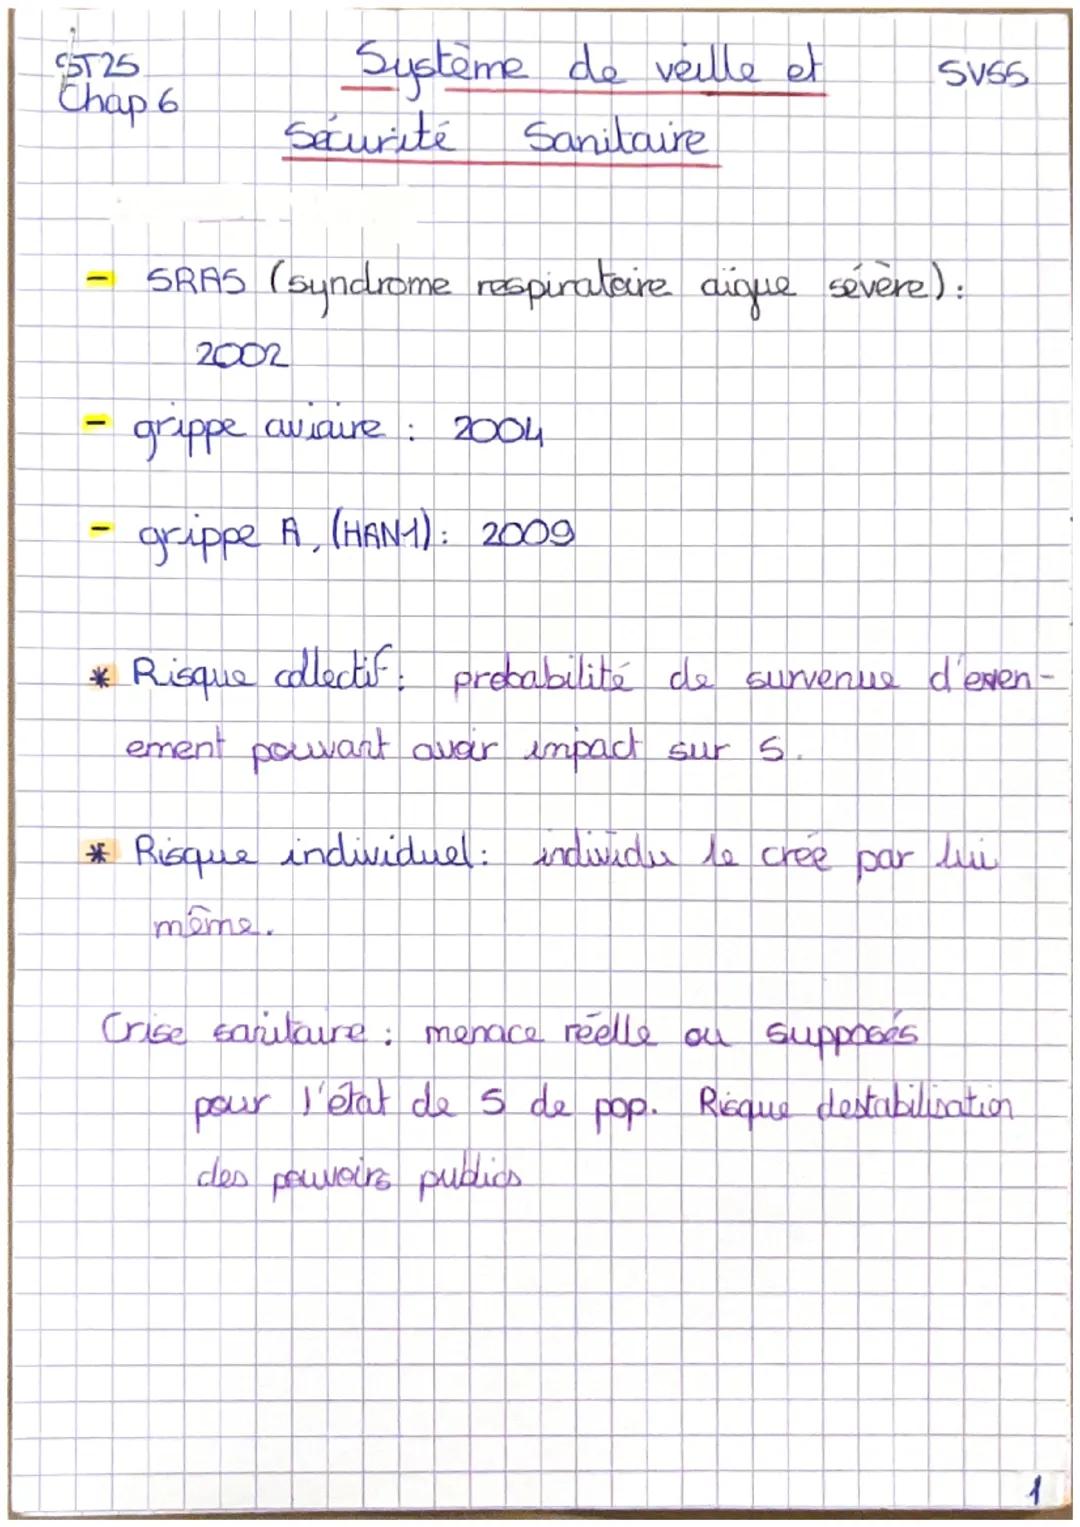 ST2S Système de veille et SVSS
Chap 6
Sécurité Sanitaire
- SRAS (syndrome respiratoire aigue sévère) :
2002
- grippe aviaire : 2004
- grippe A, (HAN1) : 2009
* Risque collectif : probabilité de survenue d'even-
ement pouvant avoir impact sur S.
* Risque individuel : individu le créé par lui
même.
Crise sanitaire : menace réelle ou supposés
pour l'état de S de pop. Risque destabilisation
des pouvoirs publics
1